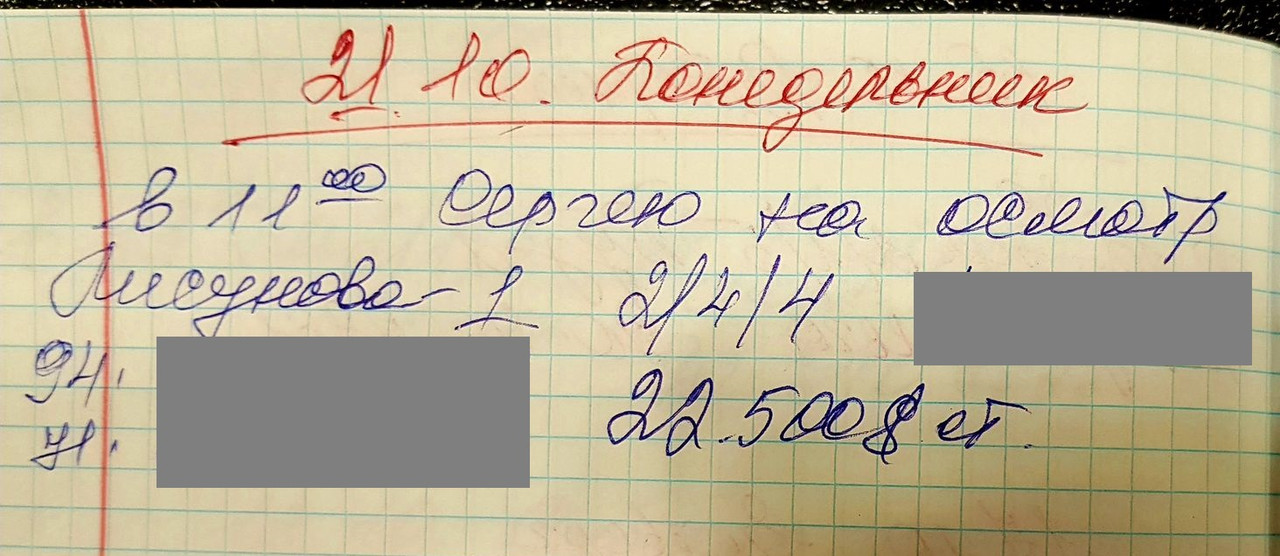 21.10. Понедельник
в 11⁰⁰ Сергею на осмотр
Лисунова - 1 2/4/4
94.
71. 22.500$ ст.